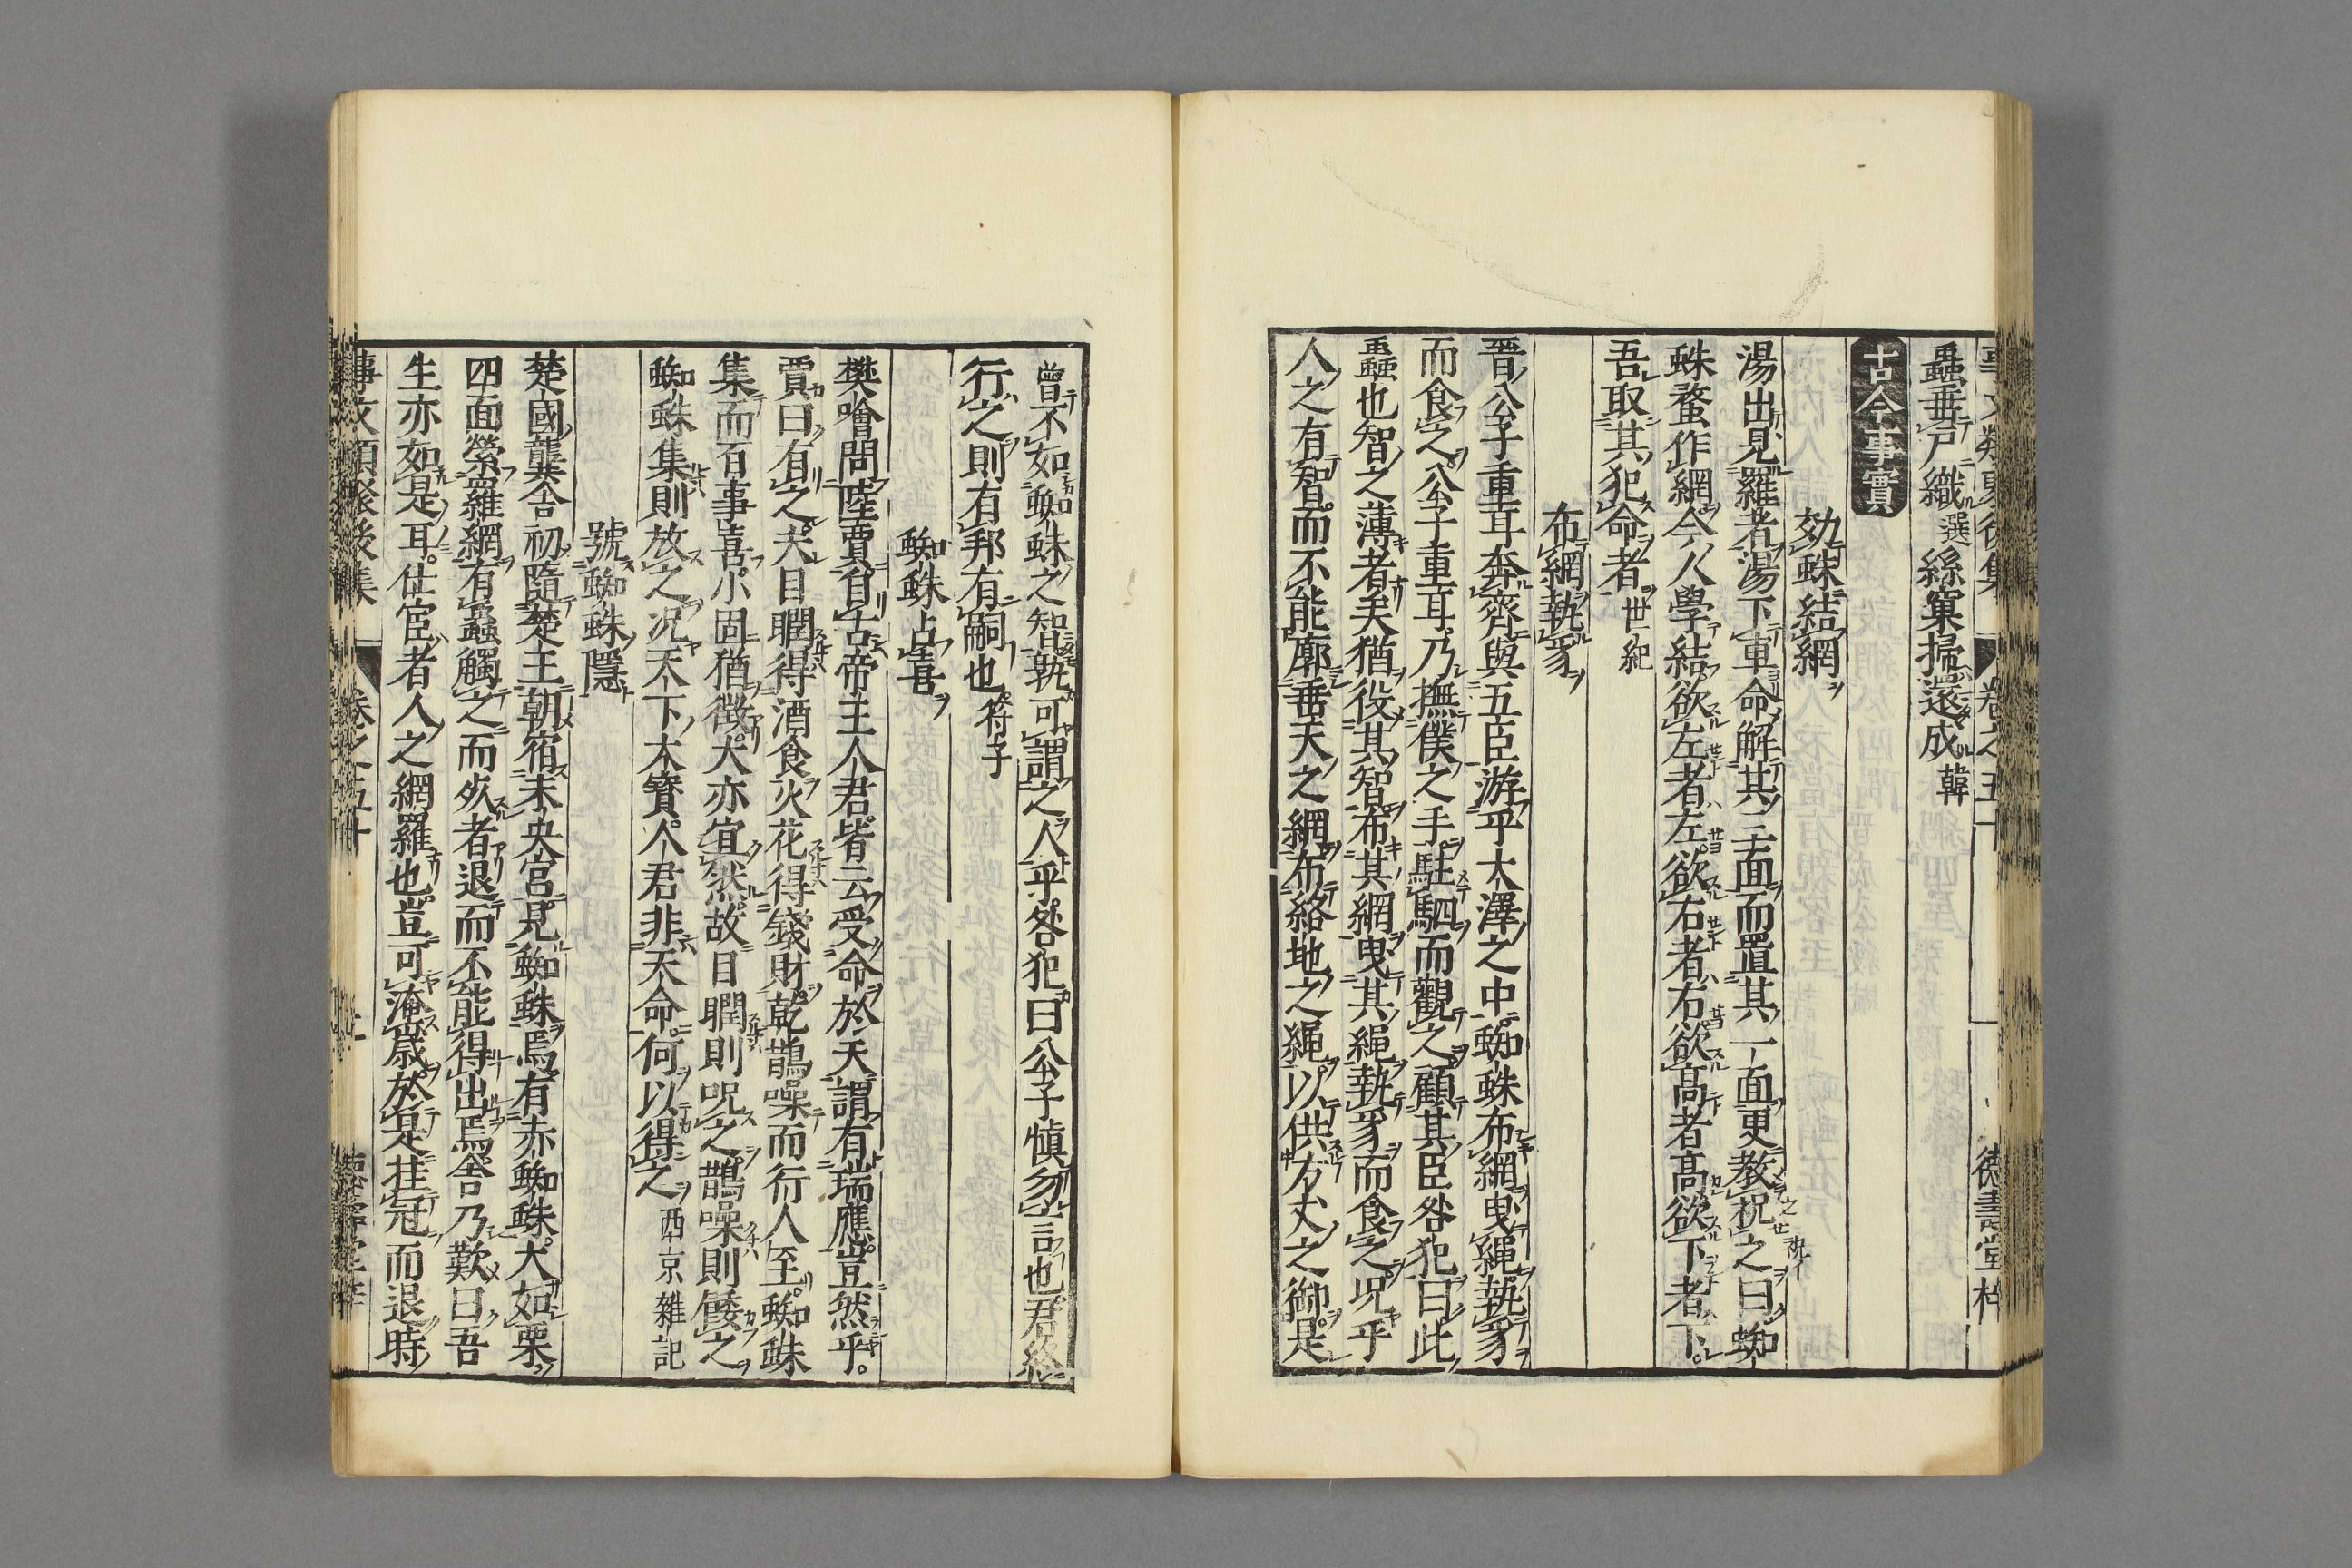 事文類聚後集 卷之五十 德壽堂梓
蟲垂戸織 選 絲窠掃還成 韓
古今事實
効蛛結網
湯出見羅者湯下車命解其三面而置其一面更教祝之曰蜘
蛛蝥作網今人學結欲左者左欲右者右欲髙者髙欲下者下
吾取其犯命者 世紀
布網執豸
晋公子重耳奔齊與五臣游乎大澤之中蜘蛛布網曳繩執豸
而食之公子重耳乃撫僕之手駐駟而觀之顧其臣咎犯曰此
蟲也智之薄者矣猶役其智布其網曳其繩執豸而食之况乎
人之有智而不能廓垂天之網布絡地之繩以供方丈之御是
曾不如蜘蛛之智孰可謂之人乎咎犯曰公子愼勿言也君終
行之則有邦有嗣也 符子
蜘蛛占喜
樊噲問陸賈自古帝王人君皆云受命於天謂有瑞應豈然乎
賈曰有之夫目瞤得酒食火花得錢財乾鵲噪而行人至蜘蛛
集而百事喜小固猶徴大亦宜然故目瞤則呪之鵲噪則餧之
蜘蛛集則放之况天下大寳人君非天命何以得之 西京雑記
號蜘蛛隱
楚國龔舎初隨楚王朝宿未央宮見蜘蛛焉有赤蜘蛛大如栗
四面縈羅網有蟲觸之而死者退而不能得出焉舎乃歎曰吾
生亦如是耳仕宦者人之網羅也豈可淹歳於是挂冠而退時
事文類聚後集 卷之五十 德壽堂梓